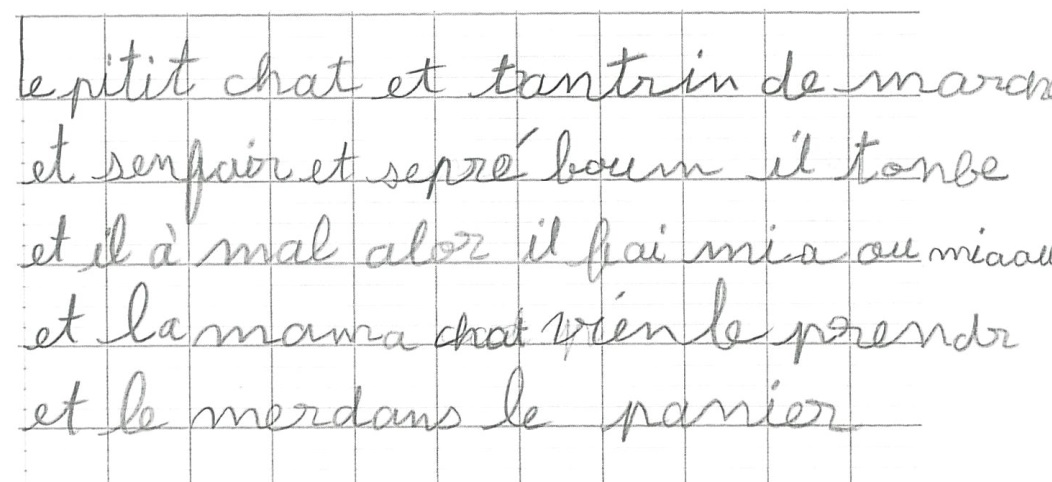 le pitit chat et tantrin de march
et senfair et sepré boum il tonbe
et il à mal alor il fiai mia ou miaou
et la mama chat vién le prendr
et le merdans le panier